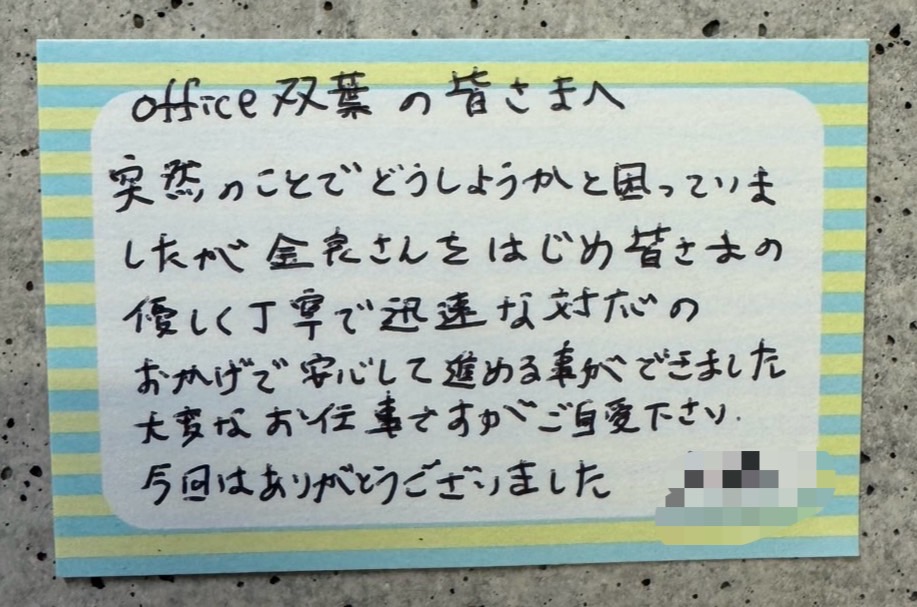 office双葉の皆さまへ
突然のことでどうしようかと困っていま
したが金衣さんをはじめ皆さまの
優しく丁寧で迅速な対応の
おかげで安心して進める事ができました
大変なお仕事ですがご自愛下さい.
今回はありがとうございました